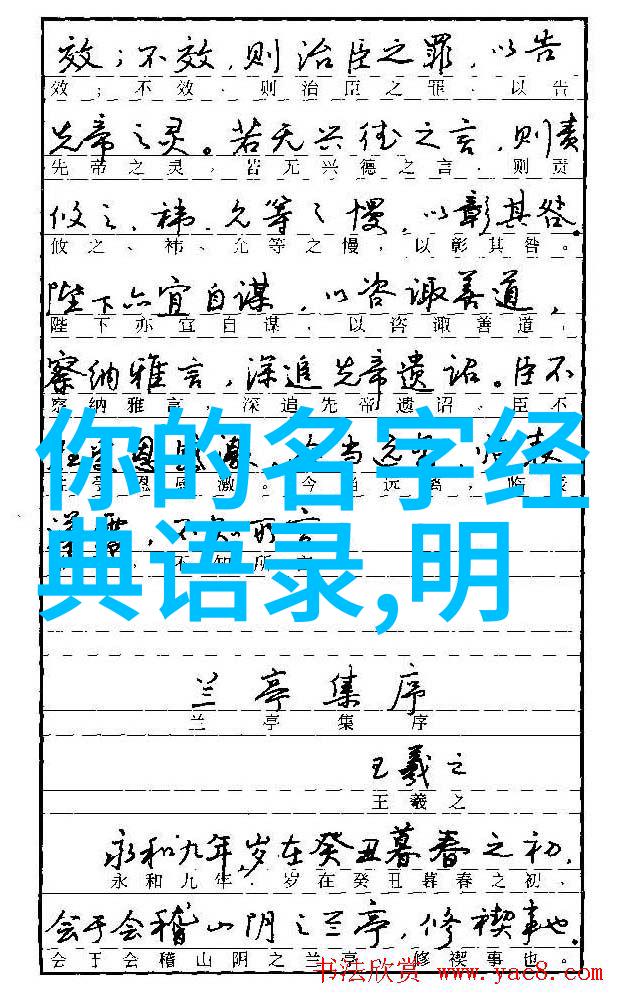 效；不效，则治臣之罪，以告
效；不效、则治臣之罪、以告
先帝之灵。若无兴德之言，则责
先帝之灵，若无兴德之言、则责
攸之、祎、允等之慢，以彰其咎。
攸之、祎、允等之慢，以彰其咎。
陛下亦宜自谋，以咨诹善道，
陛下亦宜自谋，以咨诹善道，
察纳雅言，深追先帝遗诏。臣不
察纳雅言，深追先帝遗诏、臣不
你的名字经
受恩感激，今当远离，临表
受恩感激。今当远离，临表
典语录,明
不知所言
不知所言
兰亭集序
兰亭集序
王羲之
王羲之
永和九年，岁在癸丑暮春之初，
永和九年．岁在癸丑暮春之初、
会于会稽山阴之兰亭，修禊事也。
会于会稽山阴之兰亭，修禊事也。
书法欣赏 www.yac8.com